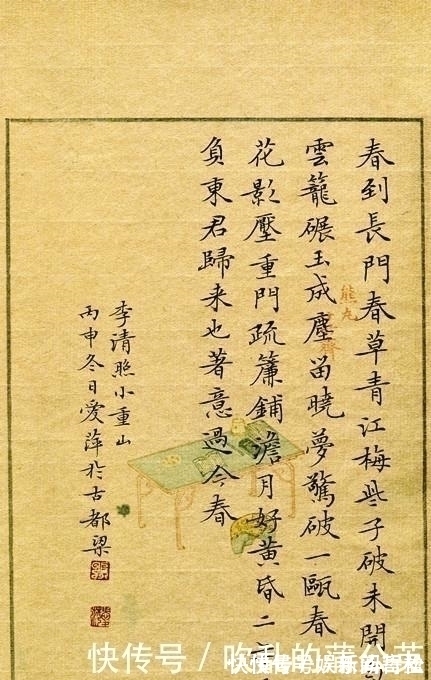 春到長門春草青江梅些子破未開
雲籠碾玉成塵留曉夢驚破一甌春
花影壓重門疏簾鋪澹月好黃昏二
負東君歸来也著意過今春
李清照小重山
丙申冬日愛萍於古都梁
熊丸
快传号 / 吹乱的蒲公英